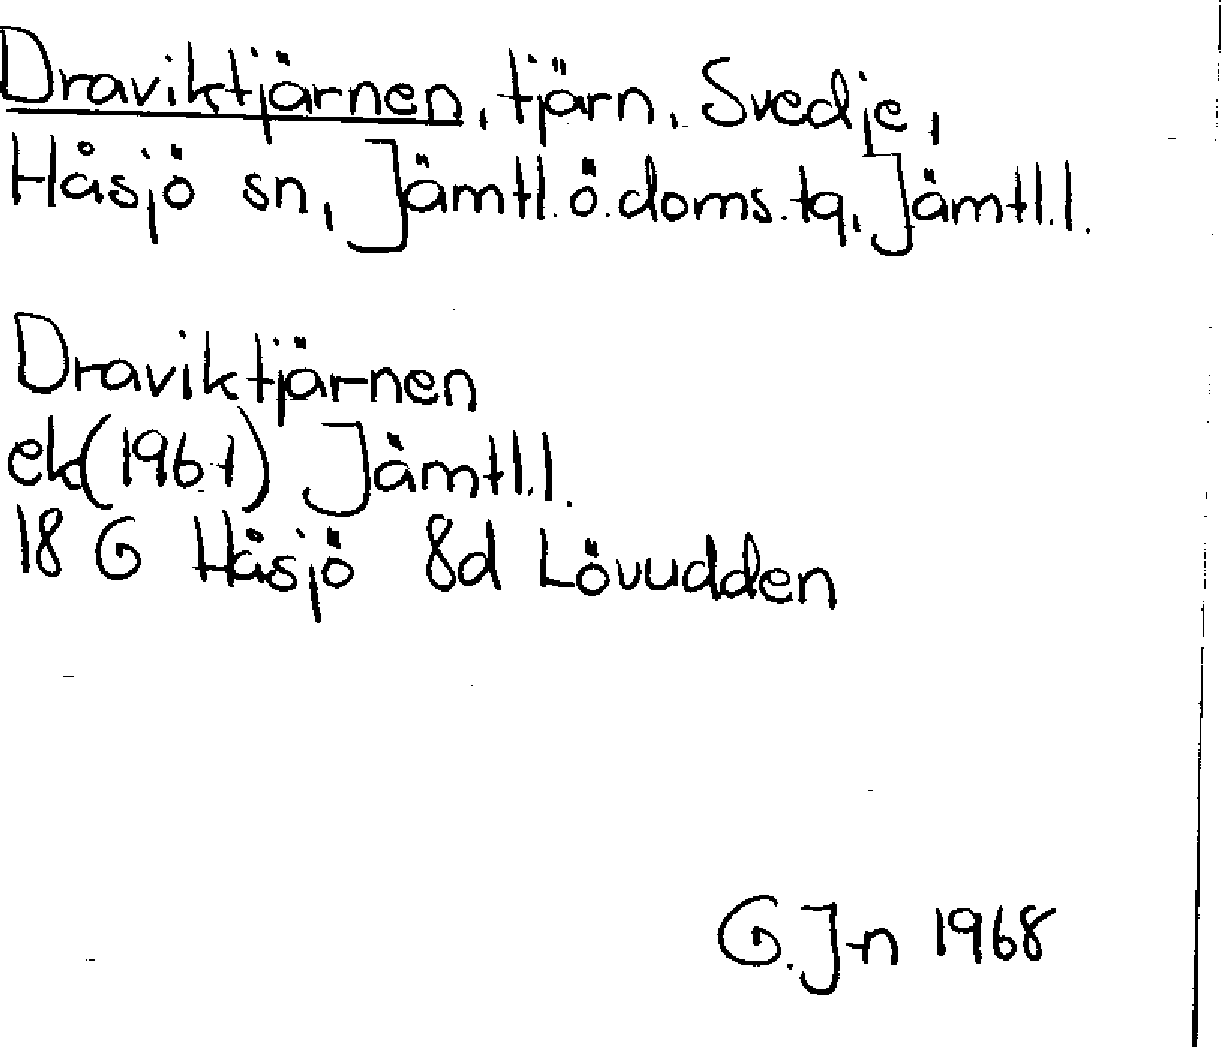 Draviktjärnen, tjärn, Svedje,
Håsjö sn, Jämtl.ö.doms.tg, Jämtl.l.
Draviktjärnen
ek(1961) Jämtl.l.
18 G Håsjö 8d Lövudden
G.J-n 1968